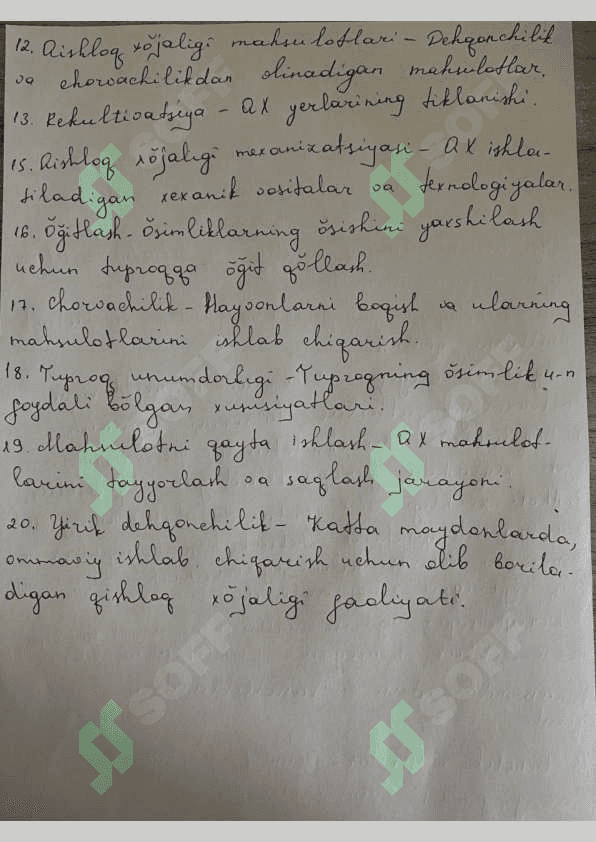 12. Qishloq xŏjaligi mahsulotlari - Dehqonchilik
va chorvachilikdan olinadigan mahsulotlar.
13. Rekultivatsiya - QX yerlarining tiklanishi.
15. Qishloq xŏjaligi mexanizatsiyasi - QX ishla-
tiladigan xexanik vositalar va texnologiyalar.
16. Ŏğitlash - Ŏsimliklarning ŏsishini yaxshilash
uchun tuproqqa ŏğit qŏllash.
17. Chorvachilik - Hayvonlarni boqish va ularning
mahsulotlarini ishlab chiqarish.
18. Tuproq unumdorligi - Tuproqning ŏsimlik u-n
foydali bŏlgan xususiyatlari.
19. Mahsulotni qayta ishlash - QX mahsulot-
larini tayyorlash va saqlash jarayoni.
20. Yirik dehqonchilik - Katta maydonlarda,
ommaviy ishlab chiqarish uchun olib borila-
digan qishloq xŏjaligi faoliyati.
SOFF
SOFF
SOFF
SOFF
SOFF
SOFF